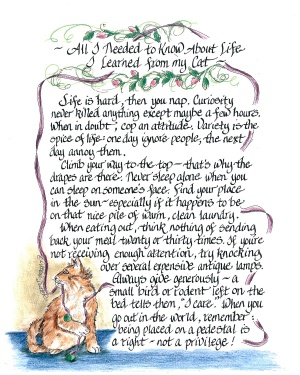 ~ All I Needed to Know About Life
I Learned from my Cat ~
Life is hard, then you nap. Curiosity
never killed anything except maybe a few hours.
When in doubt, cop an attitude. Variety is the
spice of life: one day ignore people, the next
day annoy them.
Climb your way to the top – that's why the
drapes are there. Never sleep alone when you
can sleep on someone's face. Find your place
in the sun – especially if it happens to be
on that nice pile of warm, clean laundry.
When eating out, think nothing of sending
back your meal twenty or thirty times. If you're
not receiving enough attention, try knocking
over several expensive antique lamps.
Always give generously – a
small bird or rodent left on the
bed tells them, "I care." When you
go out in the world, remember:
being placed on a pedestal is
a right – not a privilege!